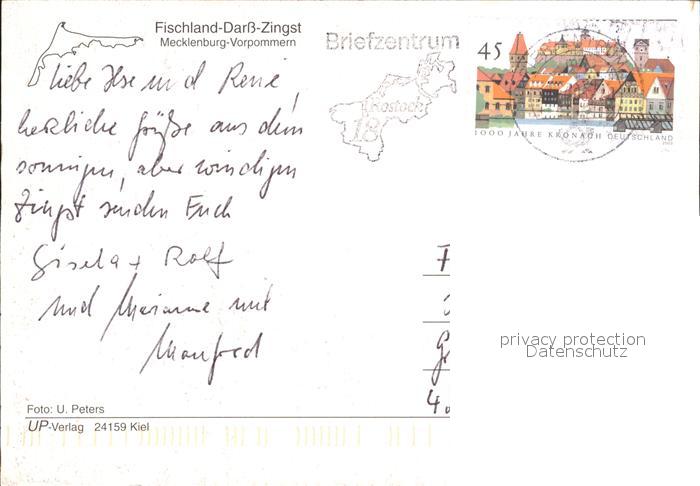 Fischland-Darß-Zingst
Mecklenburg-Vorpommern
Liebe Ilse und René,
herzliche Grüße aus dem
sonnigen, aber windigen
Zingst senden Euch
Gisela + Rolf
und Marianne mit
Manfred
Foto: U. Peters
UP-Verlag 24159 Kiel
Briefzentrum
Rostock
18
45
1000 JAHRE KRONACH DEUTSCHLAND
privacy protection
Datenschutz